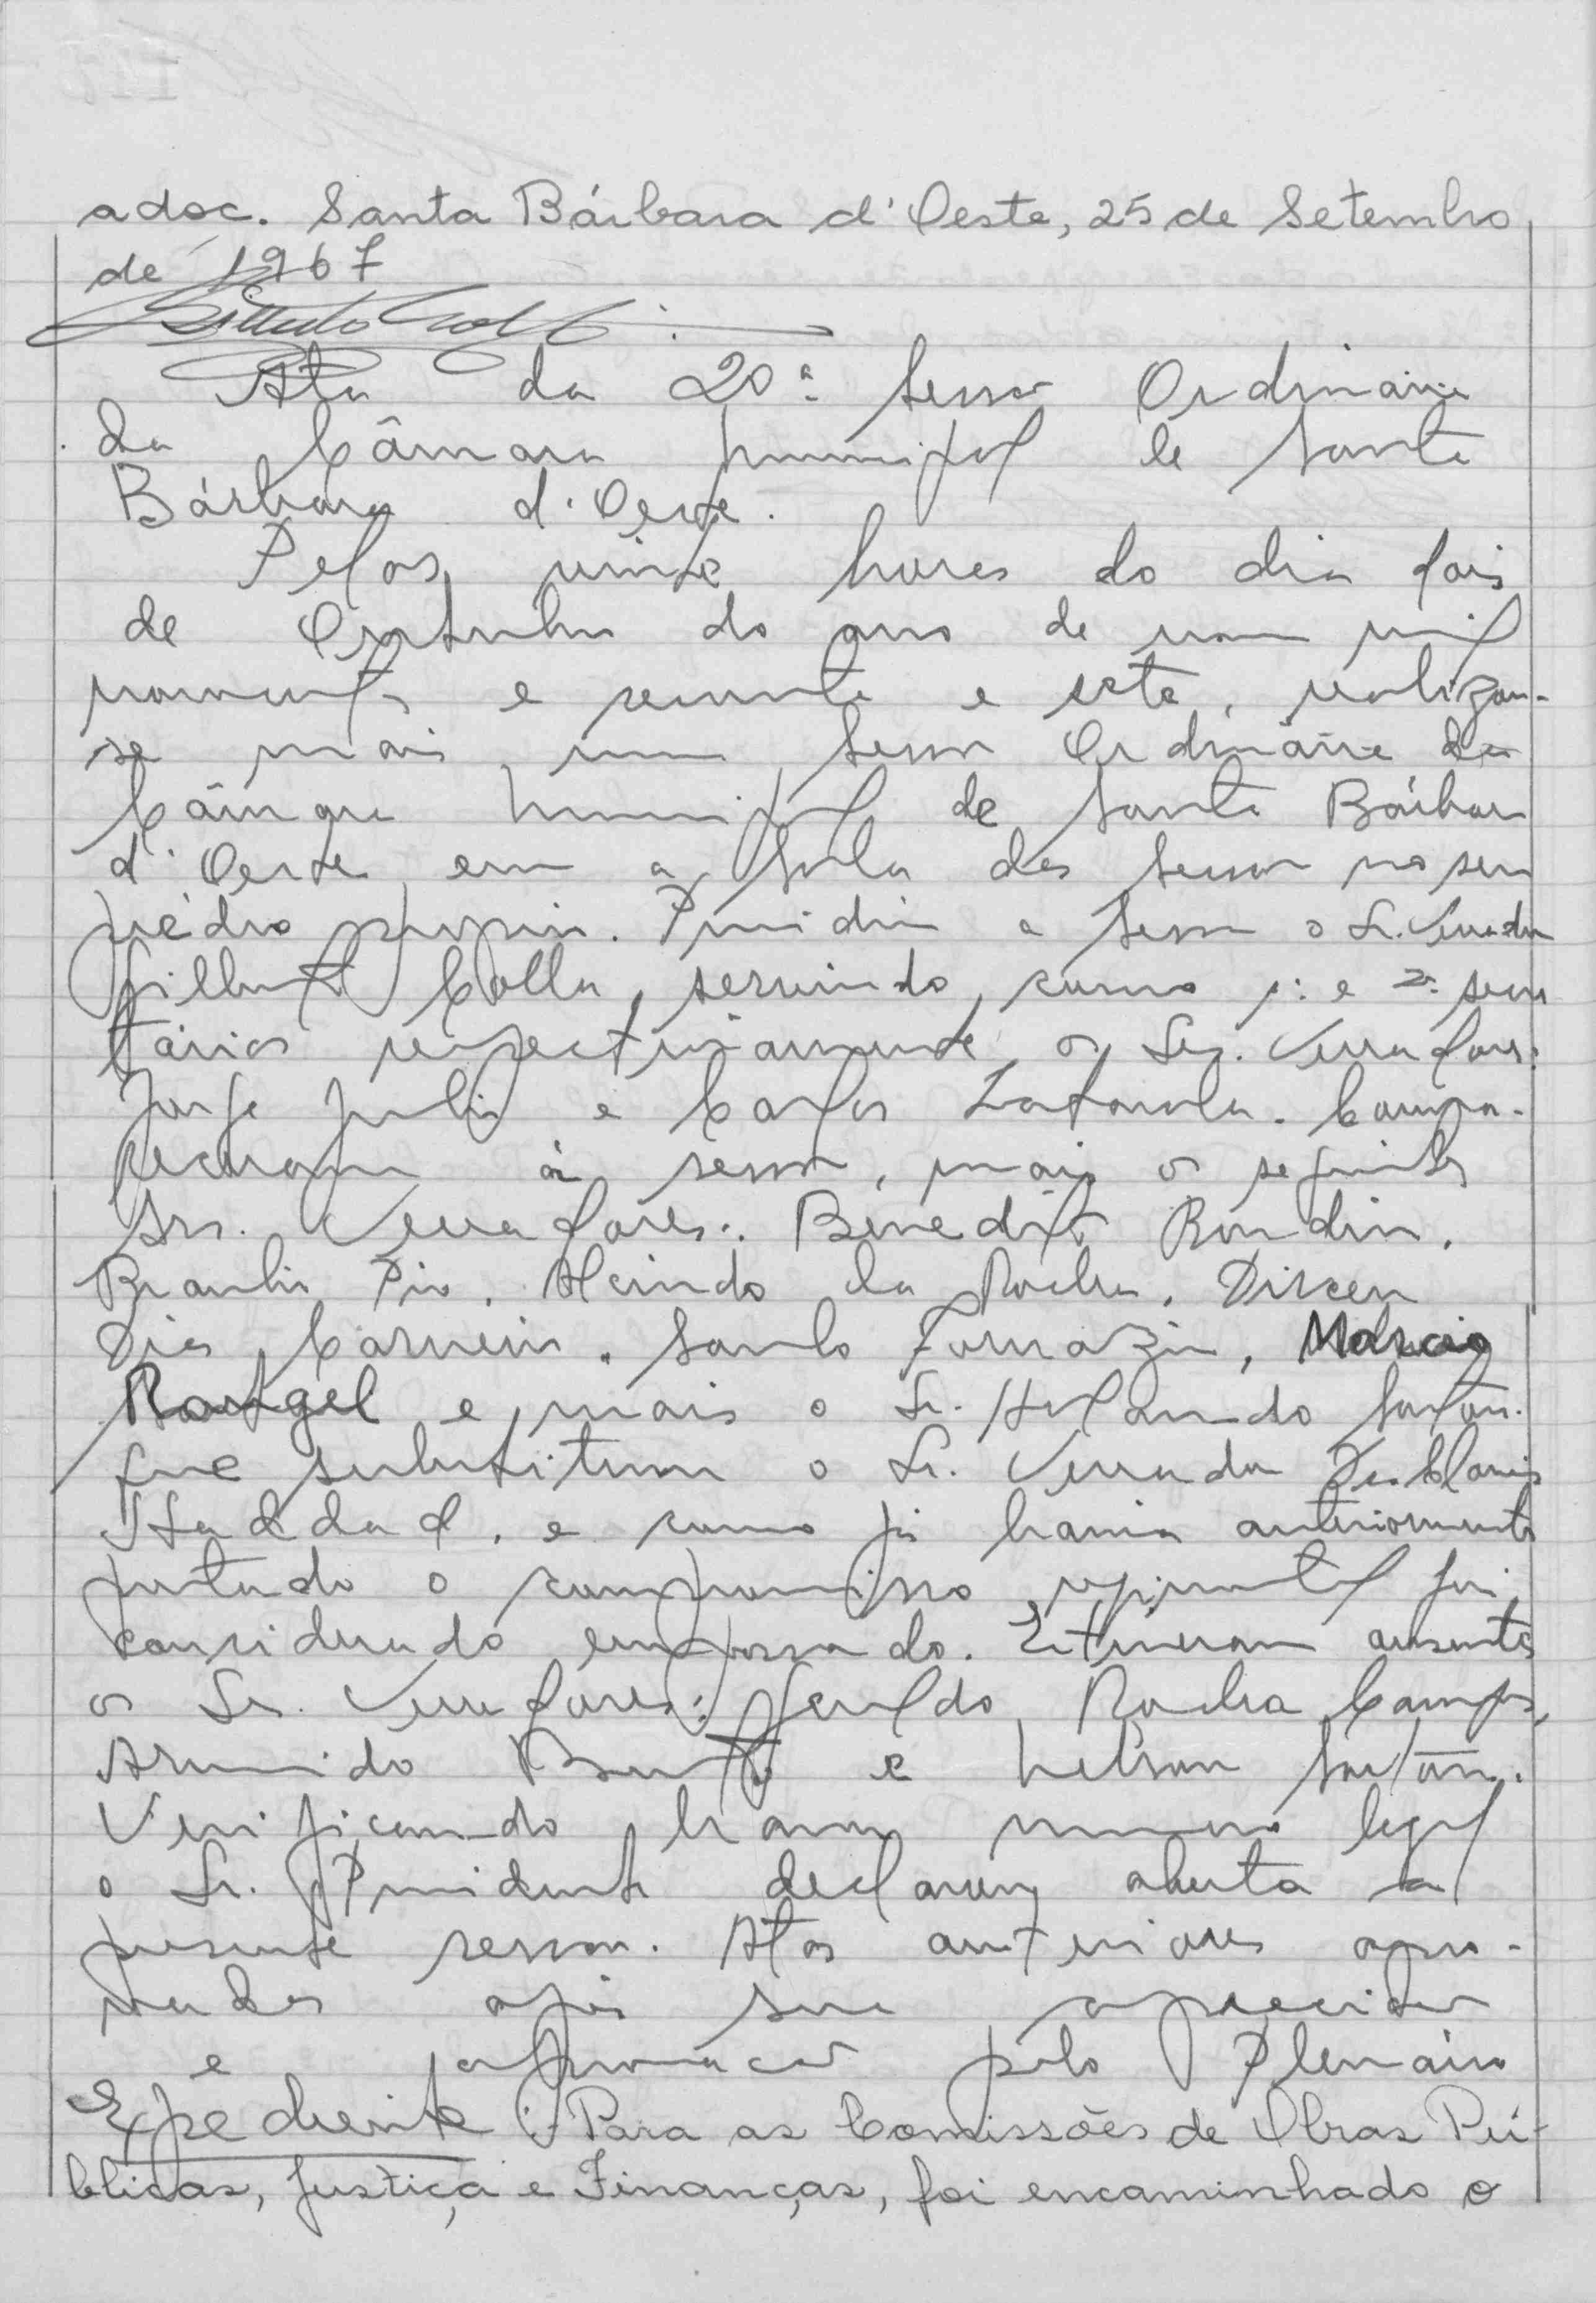 adoc. Santa Bárbara d'Oeste, 25 de Setembro
de 1967
Ata da 20ª Sessão Ordinária
da Câmara Municipal de Santa
Bárbara d'Oeste.
Pelas vinte horas do dia dois
de Outubro do ano de um mil
novecentos e sessenta e sete, realizou-
se mais uma Sessão Ordinária da
Câmara Municipal de Santa Bárbara
d'Oeste, em a Sala das Sessões no seu
prédio próprio. Presidiu a Sessão o Sr. Vereador
Gilberto Colla, servindo como 1º e 2º secre
tários respectivamente os Srs. Vereadores:
Jorge Julio e Carlos. Compa-
receram à sessão, mais os seguintes
Srs. Vereadores: Benedito Rondin,
Braulio Pio, Alcindo da Rocha, Dirceu
Dias Carneiro, Santo Fornazin, Marcio
Rangel e mais o Sr. Holando Sartori
que substituiu o Sr. Vereador
Haddad, e como já havia anteriormente
prestado o compromisso regimental foi
considerado empossado. Estiveram ausentes
os Srs. Vereadores: Geraldo Rocha Campos,
Armindo e Nelson Sartori.
Verificando haver número legal
o Sr. Presidente declarou aberta a
presente sessão. Atas anteriores apro-
vadas após sua apreciação
e aprovação pelo Plenário
Expediente:- Para as Comissões de Obras Pú-
blicas, Justiça e Finanças, foi encaminhado o